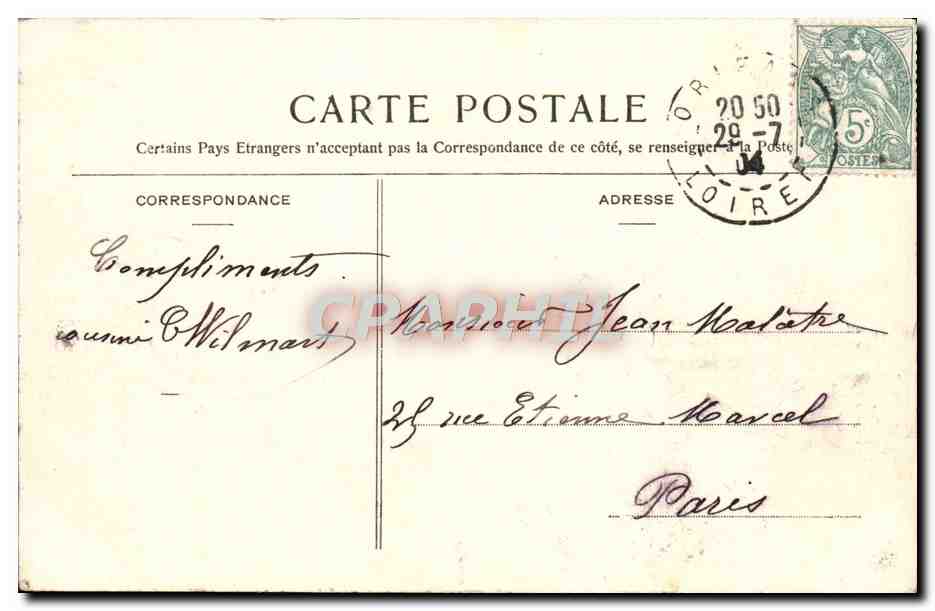 CARTE POSTALE
Certains Pays Etrangers n'acceptant pas la Correspondance de ce côté, se renseigner à la Poste
CORRESPONDANCE
ADRESSE
20 50
29 -7
04
LOIRET
5c
POSTES
Compliments
E Wilmart
CPAPHIL
Monsieur Jean Malâtre
25 rue Etienne Marcel
Paris